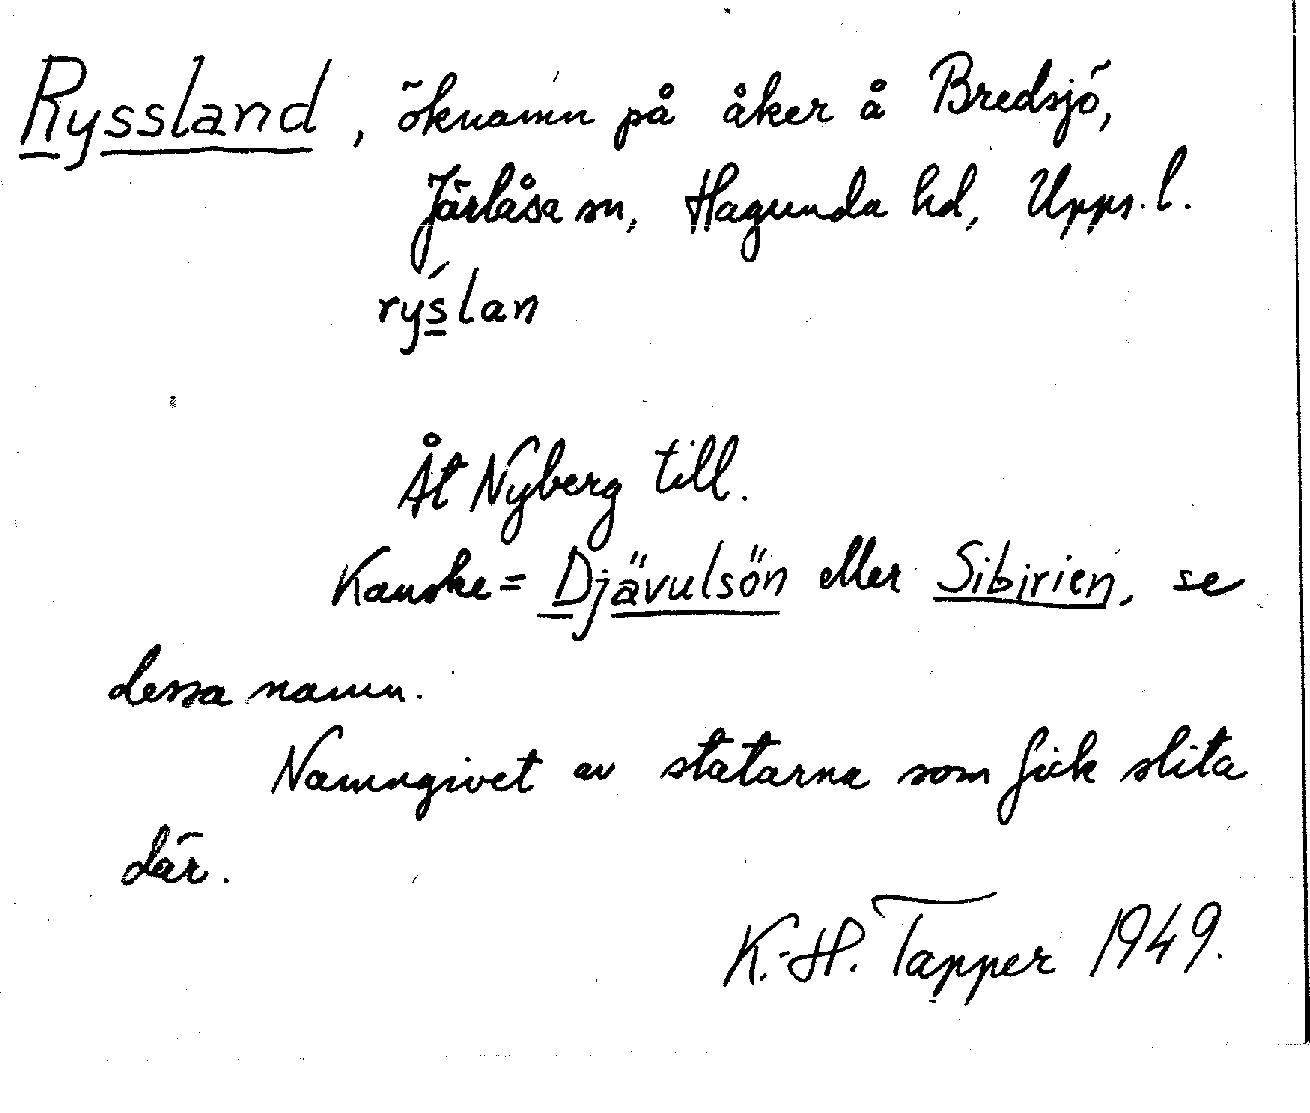 Ryssland, öknamn på åker å Bredsjö,
Järlåsa sn, Hagunda hd, Upps. l.
rýslan
Åt Nyberg till.
Kanske = Djävulsön eller Sibirien, se
dessa namn.
Namngivet av statarna som fick slita
där.
K.-H. Tapper 1949.